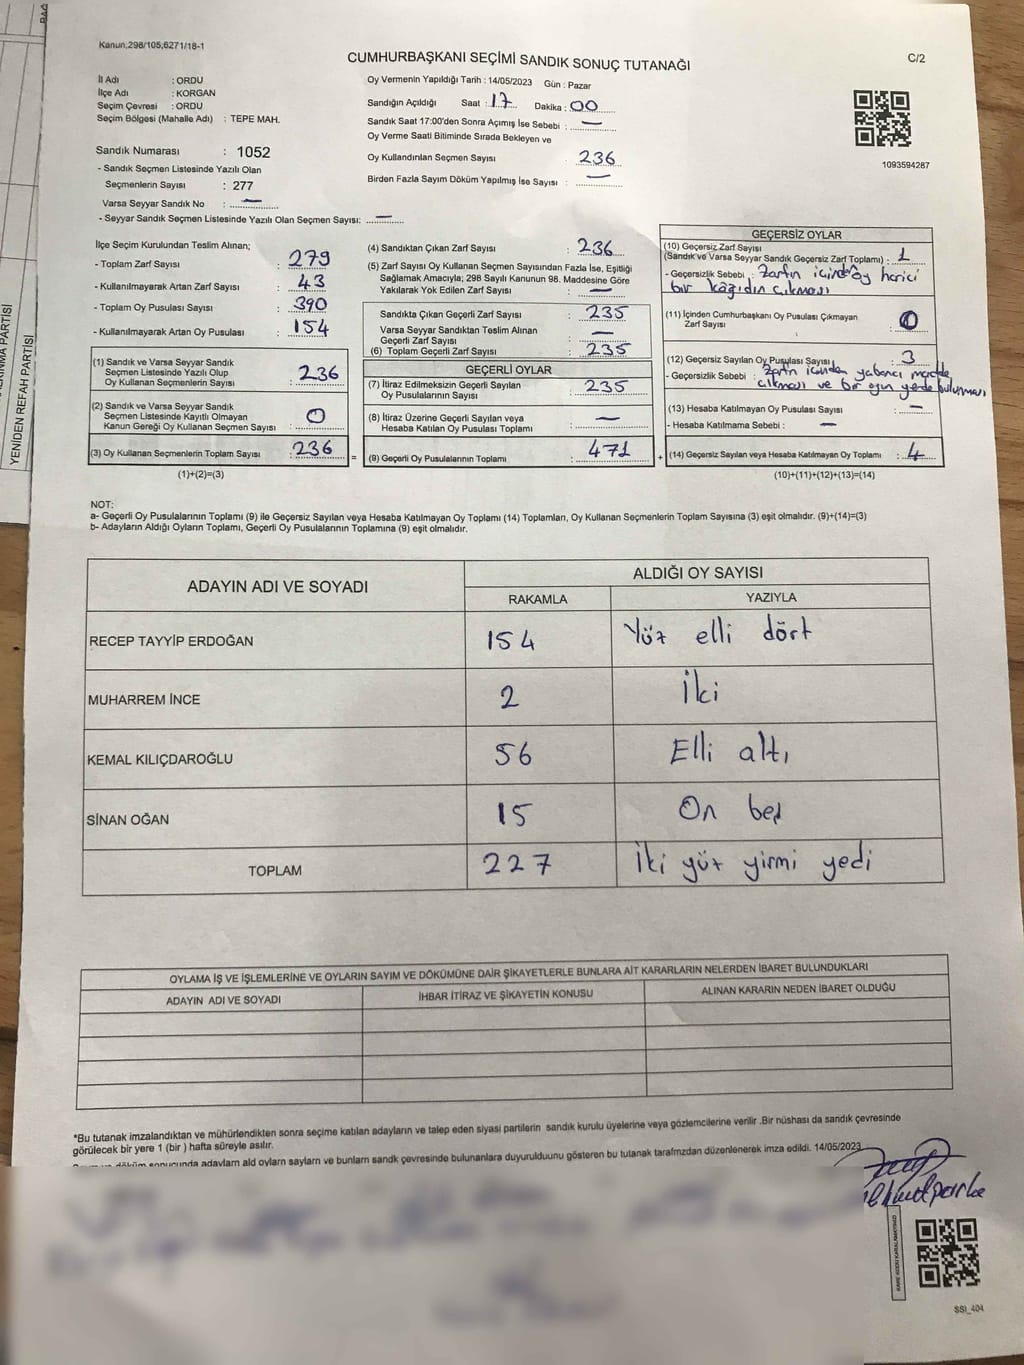 BAĞ
Kanun,298/105,6271/18-1
CUMHURBAŞKANI SEÇİMİ SANDIK SONUÇ TUTANAĞI
C/2
İl Adı : ORDU
İlçe Adı : KORGAN
Seçim Çevresi : ORDU
Seçim Bölgesi (Mahalle Adı) : TEPE MAH.
Sandık Numarası : 1052
- Sandık Seçmen Listesinde Yazılı Olan
Seçmenlerin Sayısı : 277
Varsa Seyyar Sandık No : —
- Seyyar Sandık Seçmen Listesinde Yazılı Olan Seçmen Sayısı: —
Oy Vermenin Yapıldığı Tarih : 14/05/2023 Gün : Pazar
Sandığın Açıldığı Saat : 17 Dakika : 00
Sandık Saat 17:00'den Sonra Açımış İse Sebebi : —
Oy Verme Saati Bitiminde Sırada Bekleyen ve
Oy Kullandırılan Seçmen Sayısı : 236
Birden Fazla Sayım Döküm Yapılmış İse Sayısı : —
1093594287
İlçe Seçim Kurulundan Teslim Alınan;
- Toplam Zarf Sayısı : 279
- Kullanılmayarak Artan Zarf Sayısı : 43
- Toplam Oy Pusulası Sayısı : 390
- Kullanılmayarak Artan Oy Pusulası : 154
(1) Sandık ve Varsa Seyyar Sandık
Seçmen Listesinde Yazılı Olup
Oy Kullanan Seçmenlerin Sayısı : 236
(2) Sandık ve Varsa Seyyar Sandık
Seçmen Listesinde Kayıtlı Olmayan
Kanun Gereği Oy Kullanan Seçmen Sayısı : 0
(3) Oy Kullanan Seçmenlerin Toplam Sayısı : 236
(1)+(2)=(3)
(4) Sandıktan Çıkan Zarf Sayısı : 236
(5) Zarf Sayısı Oy Kullanan Seçmen Sayısından Fazla İse, Eşitliği
Sağlamak Amacıyla; 298 Sayılı Kanunun 98. Maddesine Göre
Yakılarak Yok Edilen Zarf Sayısı : —
Sandıkta Çıkan Geçerli Zarf Sayısı : 235
Varsa Seyyar Sandıktan Teslim Alınan
Geçerli Zarf Sayısı : —
(6) Toplam Geçerli Zarf Sayısı : 235
GEÇERLİ OYLAR
(7) İtiraz Edilmeksizin Geçerli Sayılan
Oy Pusulalarının Sayısı : 235
(8) İtiraz Üzerine Geçerli Sayılan veya
Hesaba Katılan Oy Pusulası Toplamı : —
= (9) Geçerli Oy Pusulalarının Toplamı : 471
GEÇERSİZ OYLAR
(10) Geçersiz Zarf Sayısı
(Sandık ve Varsa Seyyar Sandık Geçersiz Zarf Toplamı) : 1
- Geçersizlik Sebebi : Zarfın içinde oy harici
bir kâğıdın çıkması
(11) İçinden Cumhurbaşkanı Oy Pusulası Çıkmayan
Zarf Sayısı : 0
(12) Geçersiz Sayılan Oy Pusulası Sayısı : 3
- Geçersizlik Sebebi : Zarfın içinden yabancı madde
çıkması ve bir oyun yerde bulunması
(13) Hesaba Katılmayan Oy Pusulası Sayısı : —
- Hesaba Katılmama Sebebi : —
+ (14) Geçersiz Sayılan veya Hesaba Katılmayan Oy Toplamı : 4
(10)+(11)+(12)+(13)=(14)
NOT:
a- Geçerli Oy Pusulalarının Toplamı (9) ile Geçersiz Sayılan veya Hesaba Katılmayan Oy Toplamı (14) Toplamları, Oy Kullanan Seçmenlerin Toplam Sayısına (3) eşit olmalıdır. (9)+(14)=(3)
b- Adayların Aldığı Oyların Toplamı, Geçerli Oy Pusulalarının Toplamına (9) eşit olmalıdır.
ADAYIN ADI VE SOYADI
ALDIĞI OY SAYISI
RAKAMLA YAZIYLA
RECEP TAYYİP ERDOĞAN 154 Yüz elli dört
MUHARREM İNCE 2 İki
KEMAL KILIÇDAROĞLU 56 Elli altı
SİNAN OĞAN 15 On beş
TOPLAM 227 İki yüz yirmi yedi
OYLAMA İŞ VE İŞLEMLERİNE VE OYLARIN SAYIM VE DÖKÜMÜNE DAİR ŞİKAYETLERLE BUNLARA AİT KARARLARIN NELERDEN İBARET BULUNDUKLARI
ADAYIN ADI VE SOYADI İHBAR İTİRAZ VE ŞİKAYETİN KONUSU ALINAN KARARIN NEDEN İBARET OLDUĞU
*Bu tutanak imzalandıktan ve mühürlendikten sonra seçime katılan adayların ve talep eden siyasi partilerin sandık kurulu üyelerine veya gözlemcilerine verilir .Bir nüshası da sandık çevresinde
görülecek bir yere 1 (bir ) hafta süreyle asılır.
sonucunda adayların ald oyların sayların ve bunların sandk çevresinde bulunanlara duyurulduunu gösteren bu tutanak tarafmzdan düzenlenerek imza edildi. 14/05/2023
SSI_404
YENİDEN REFAH PARTİSİ
PARTİSİ